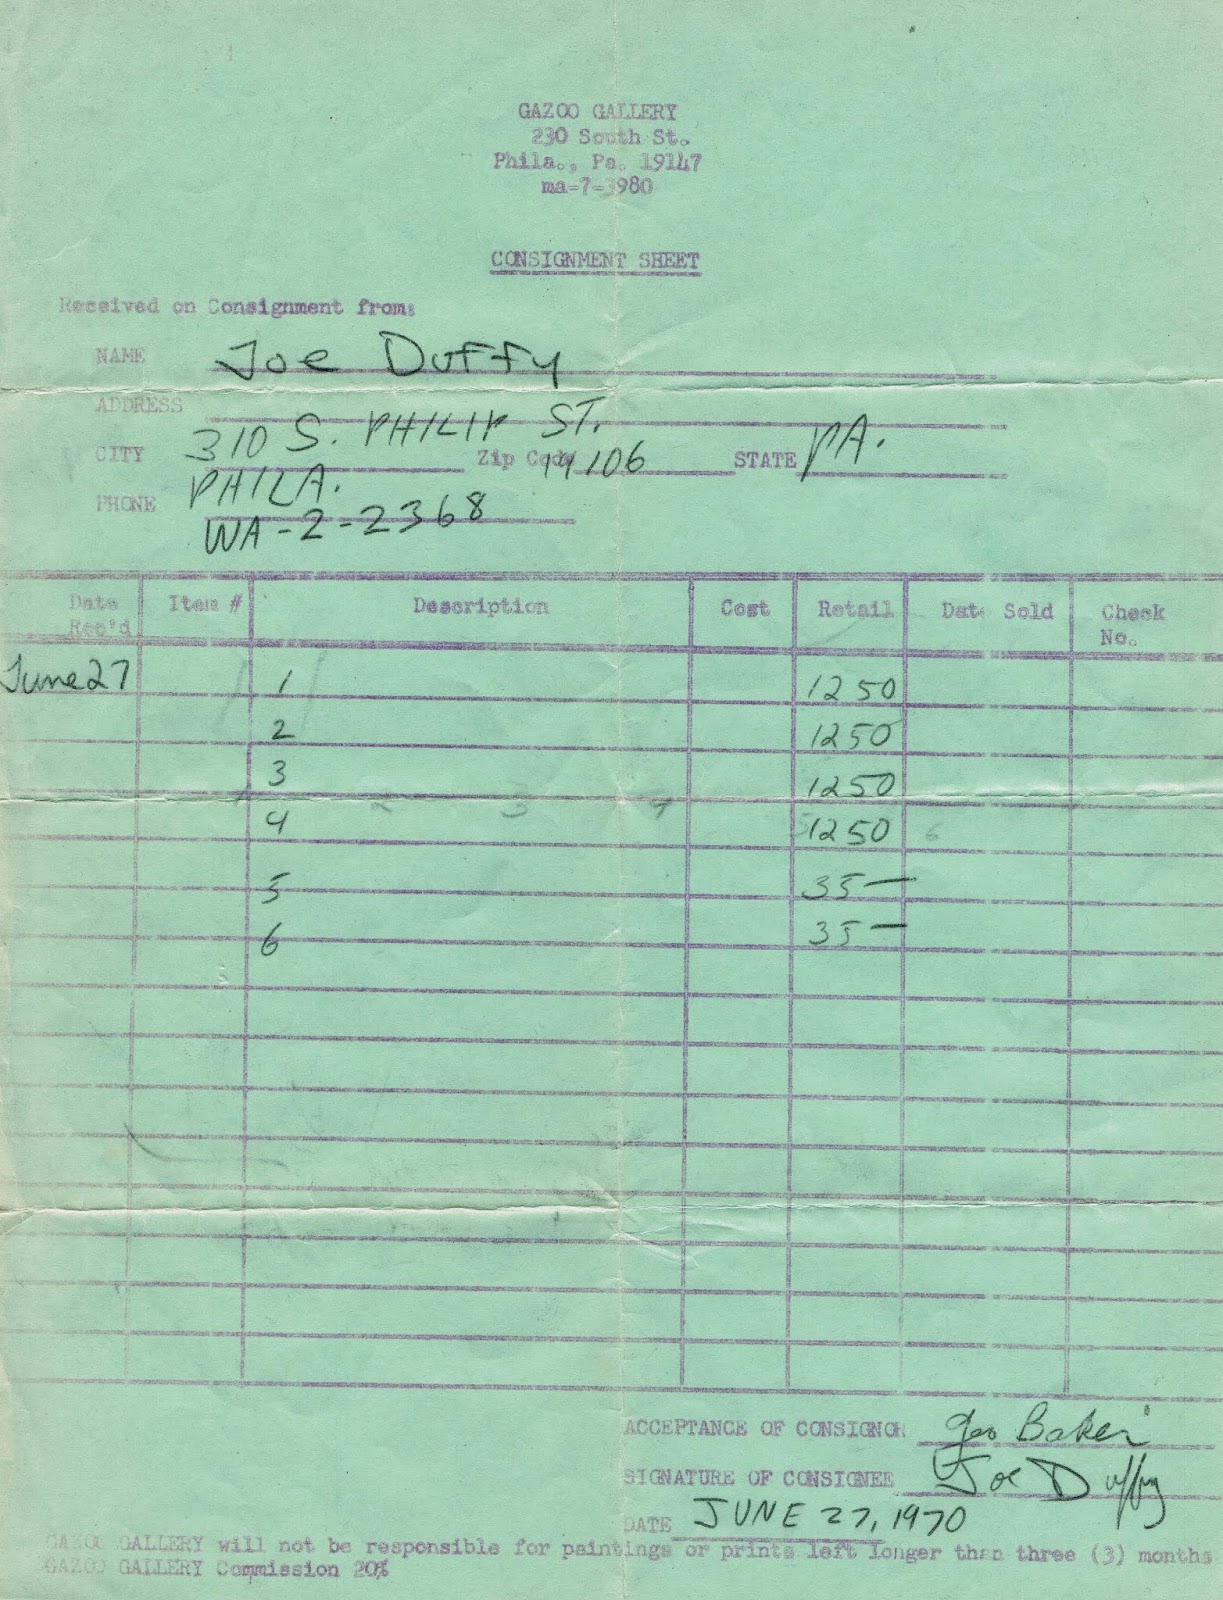 GAZOO GALLERY
230 South St.
Phila., Pa. 19147
ma-7-3980
CONSIGNMENT SHEET
Received on Consignment from:
NAME Joe Duffy
ADDRESS 310 S. PHILIP ST.
CITY PHILA. Zip Code 19106 STATE PA.
PHONE WA-2-2368
Date Rec'd Item # Description Cost Retail Date Sold Check No.
June 27 1 1250
2 1250
3 1250
4 1250
5 35—
6 35—
ACCEPTANCE OF CONSIGNOR Geo Baker
SIGNATURE OF CONSIGNEE Joe Duffy
DATE JUNE 27, 1970
GAZOO GALLERY will not be responsible for paintings or prints left longer than three (3) months
GAZOO GALLERY Commission 20%